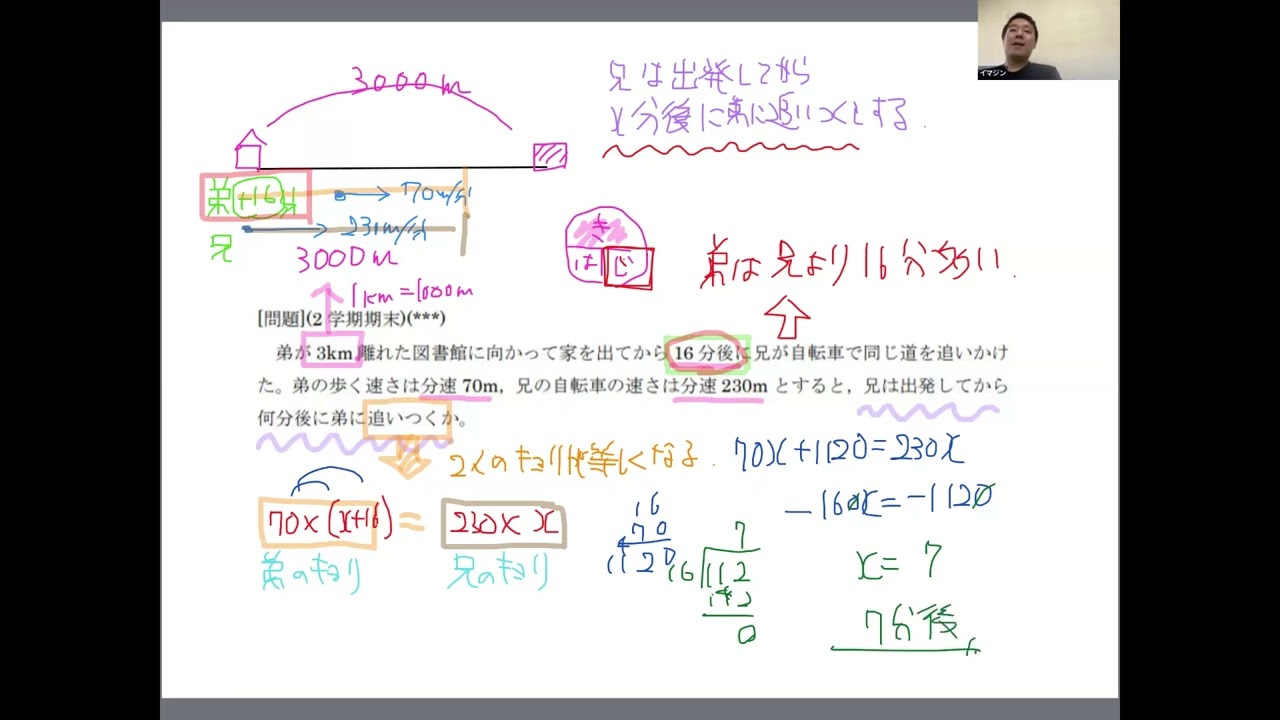 イマジン
3000m
兄は出発してから
x分後に弟に追いつくとする.
弟 +16分 → 70m/分
兄 → 230m/分
3000m
1km=1000m
き
は じ
弟は兄より16分多い.
[問題](2 学期期末)(***)
弟が 3km 離れた図書館に向かって家を出てから 16 分後に兄が自転車で同じ道を追いかけ
た。弟の歩く速さは分速 70m，兄の自転車の速さは分速 230m とすると，兄は出発してから
何分後に弟に追いつくか。
2人のキョリが等しくなる.
70×(x+16) = 230×x
弟のキョリ 兄のキョリ
16
70
1120
7
16 112
112
0
70x+1120=230x
-160x=-1120
x=7
7分後